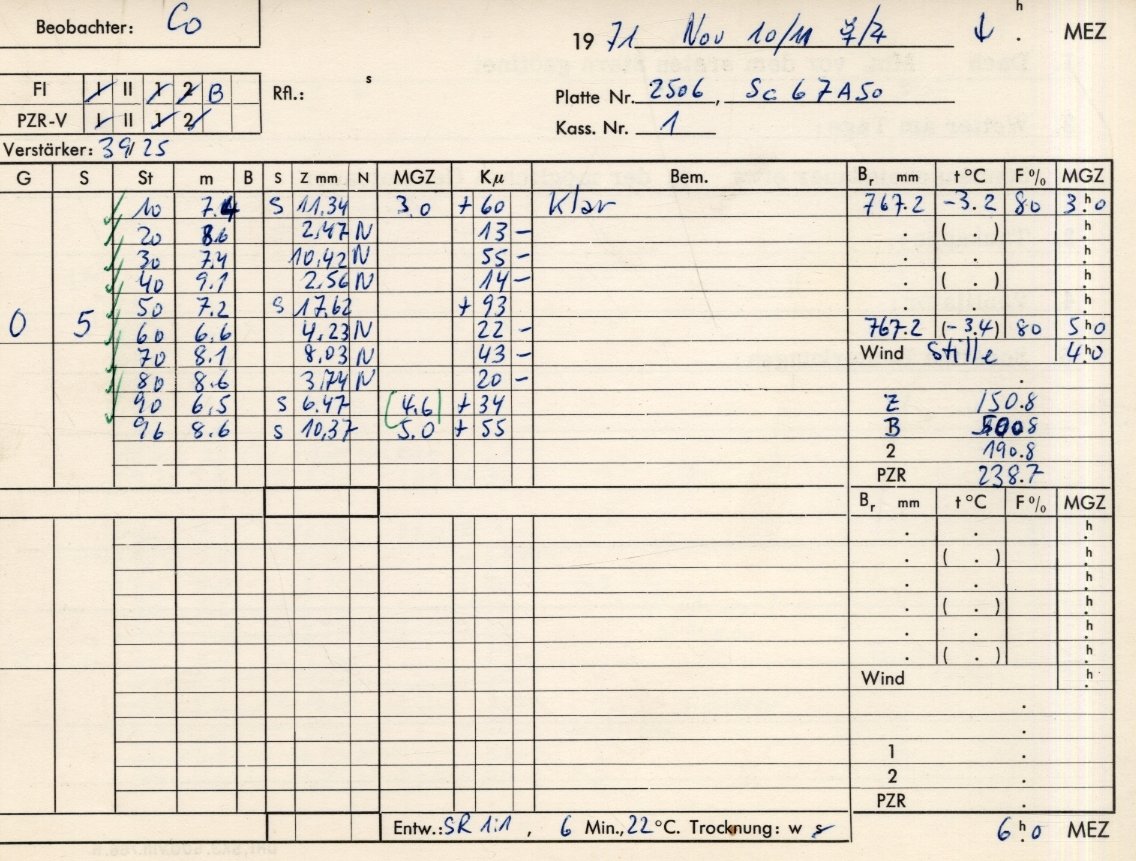 Beobachter: Co
19 71 Nov 10/11 ↓ h . MEZ
FI I II 1 2 B Rfl.: s
PZR-V I II 1 2
Platte Nr. 2506, Sc 67A50
Kass. Nr. 1
Verstärker: 39/25
G S St m B S Z mm N MGZ Kμ Bem. Br mm t °C F % MGZ
10 7.4 S 11,34 3.0 + 60 Klar 767.2 -3.2 80 3 h 0
20 8.6 2,47 N 13 - . ( . ) h
30 7.4 10,42 N 55 - . . h
40 9.1 2.56 N 14 - . ( . ) h
50 7.2 S 17.62 + 93 . . h
0 5 60 6.6 4,23 N 22 - 767.2 (-3.4) 80 5 h 0
70 8.1 8,03 N 43 - Wind Stille 4 h 0
80 8.6 3,74 N 20 - .
90 6,5 S 6.47 (4.6) + 34 Z 150.8
96 8.6 S 10,37 5.0 + 55 B
2 190.8
PZR 238.7
Br mm t °C F % MGZ
. . h
. ( . ) h
. . h
. ( . ) h
. . h
. ( . ) h
Wind h
.
.
1 .
2 .
PZR .
Entw.: SR 1:1, 6 Min., 22 °C. Trocknung: w s 6 h 0 MEZ